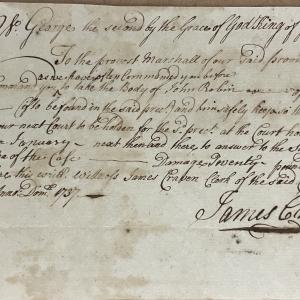 George the second by the Grace of God King of
To the provost Marshall of our said prov
As we have often Commanded you before
you to take the Body of John Robin
be found in the said and him safely keep so
our next Court to be holden for the at the Court ho
January next then and there to answer to the
of the Case Damage
this writ. Witness James Craven Clerk of the said
Anno Dom 1737
James